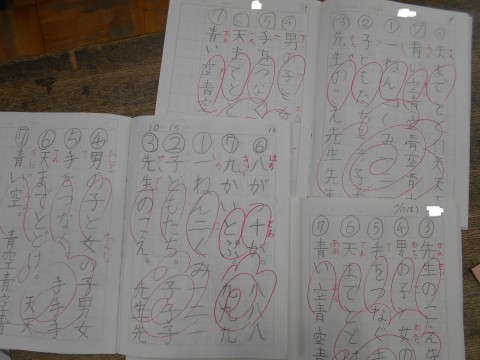 ⑥天まで とどけ 天天
⑦青い空 青空青
①一ねん二くみ
②子どもたち 子子
③先生のこえ 先先生
④男の子と女
⑤手をつなぐ
⑥天までとど
⑦青い空 青空
⑥八がつ十か 八八八
⑦九かいとぶ 九九九
①一ねん二くみ 一二
②子どもたち。子子子
③先生のこえ。先先先
④男の子と女の子男女
⑤手をつなぐ 手手手
⑥天までとどけ。天天
⑦青い空。青空青
③先生のこえ
④男の子と女
⑤手をつなぐ
⑥天までとど
⑦青い空 青空青